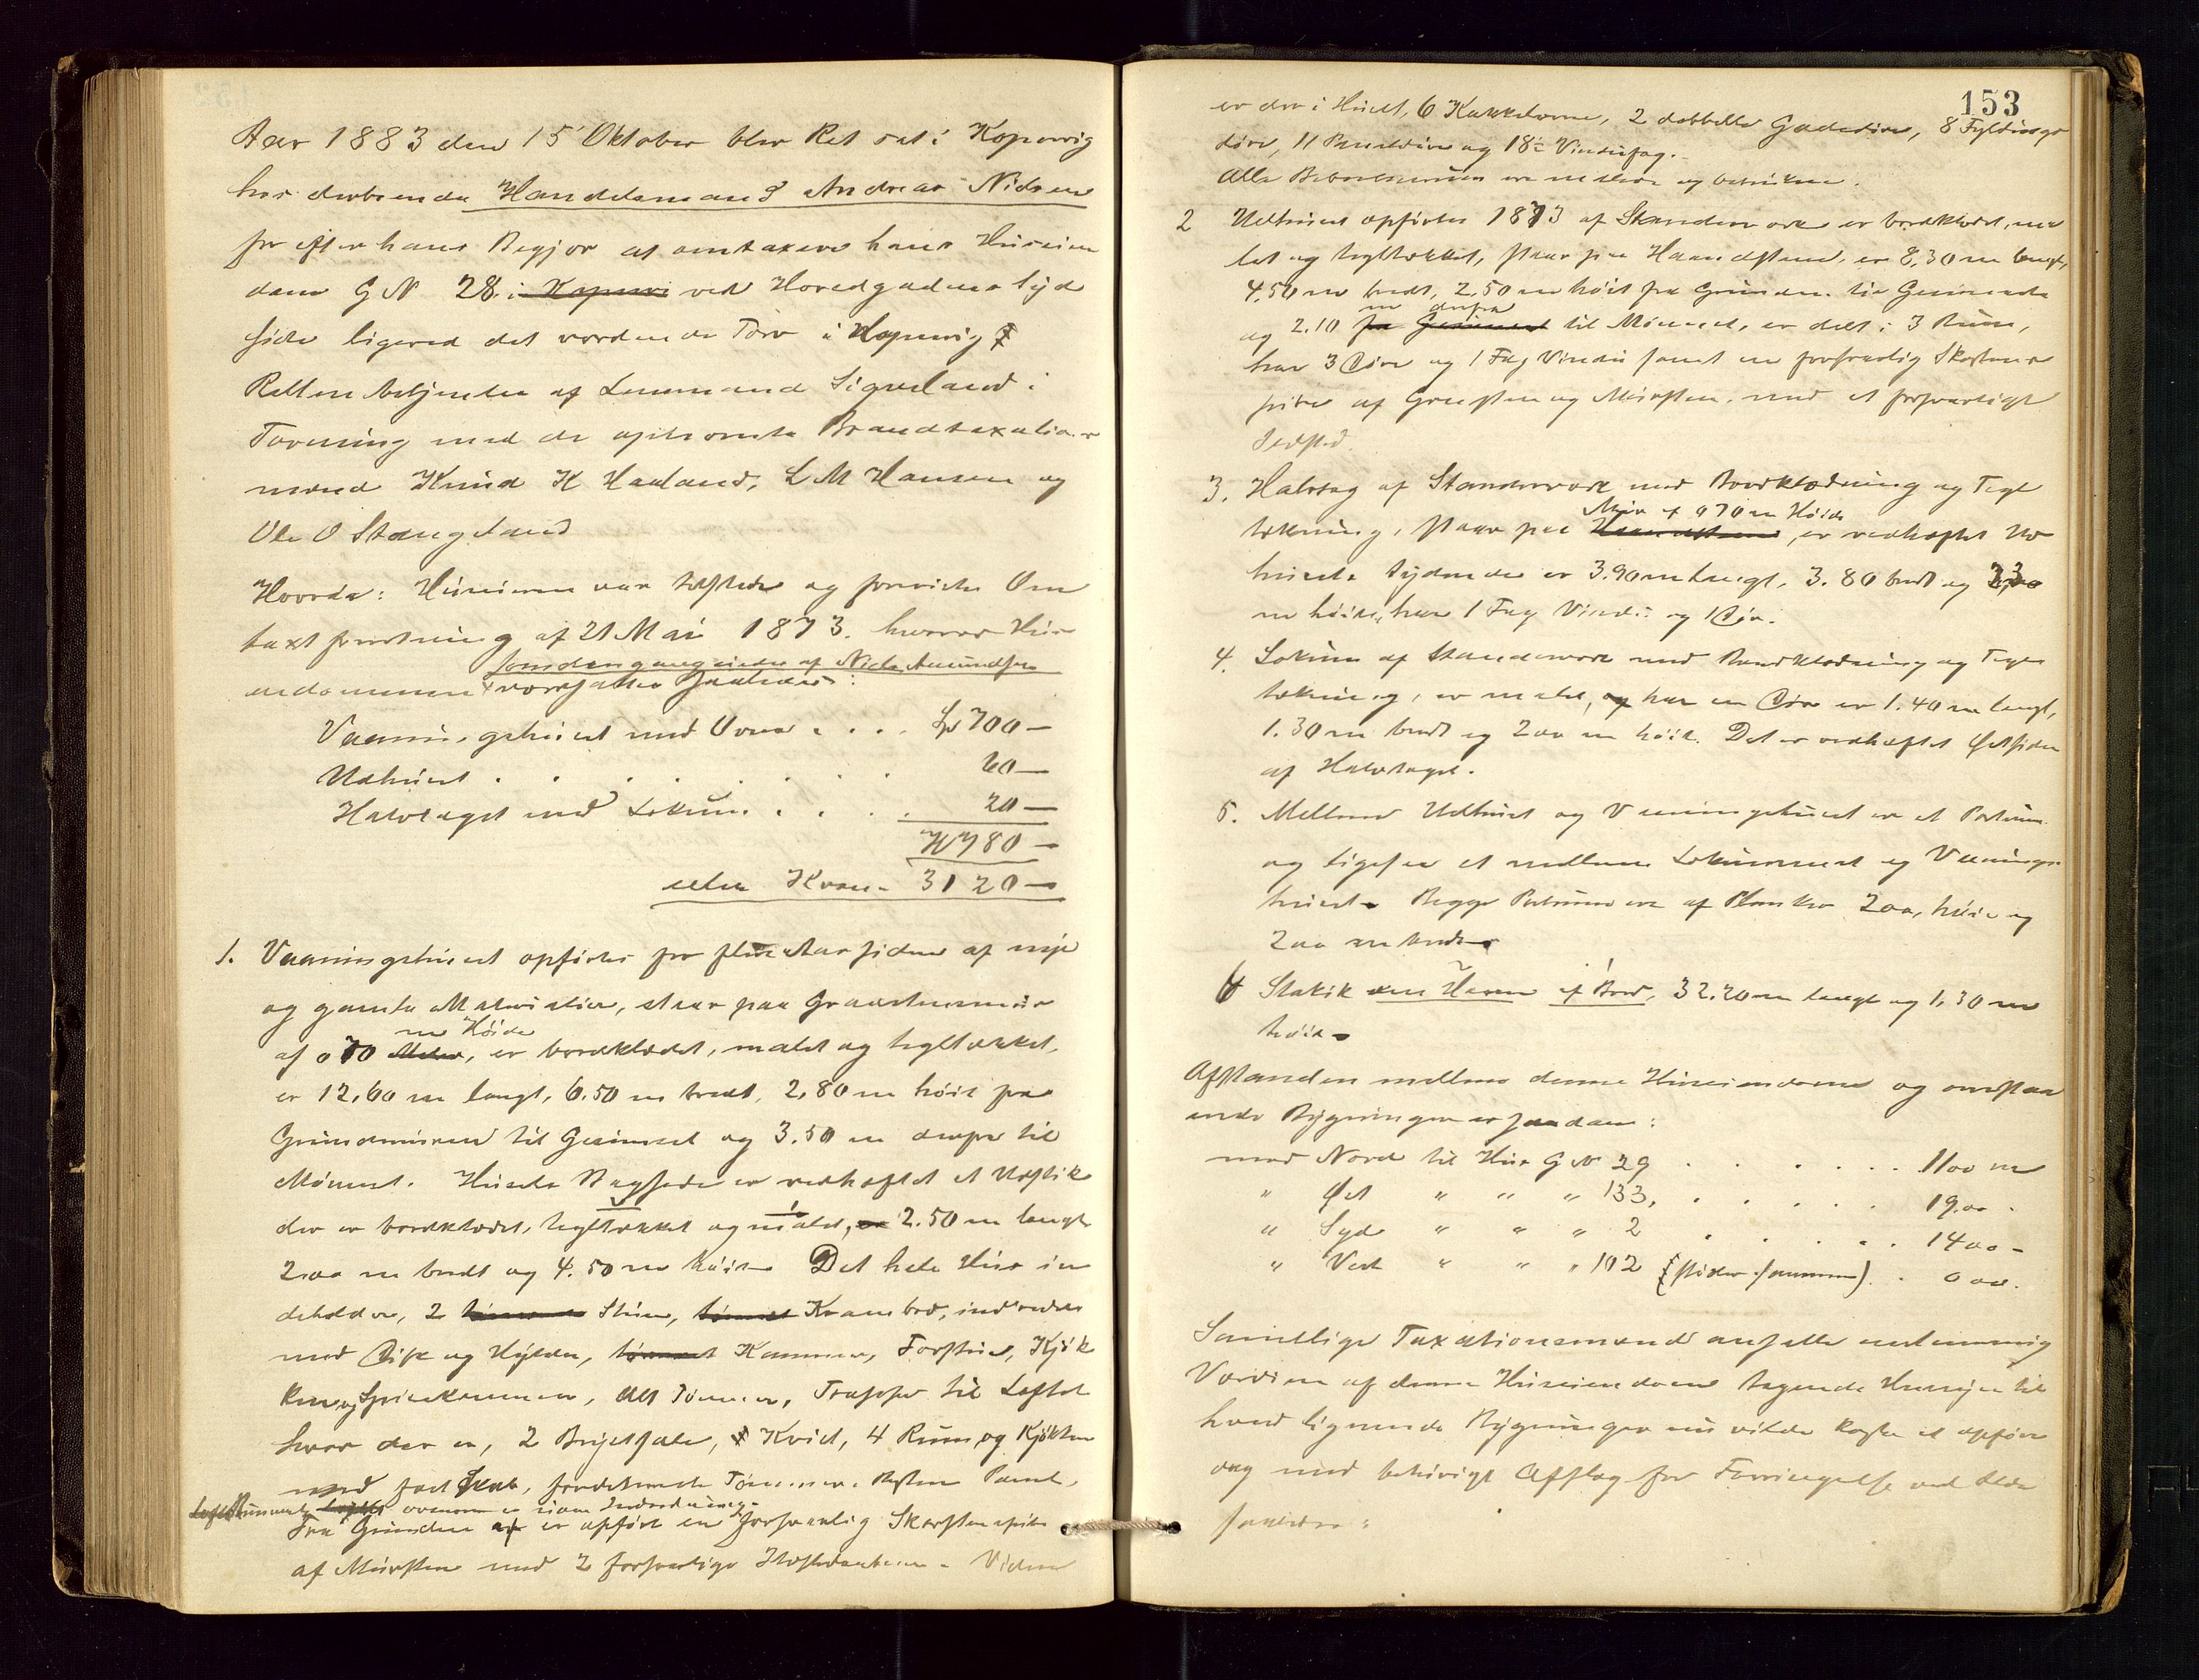 Aar 1883 den 15 Oktober blev Ret sat i Kopervig
hos derboende Handelsmand Andreas Nielsen
for efter hans Begjær at omtaxere hans Huseien
dom G N 28 i Kopervi ved Hovedgadens syd
side ligeved det vordende Torv i Kopervig
Retten betjentes af Lensmand Sigveland i
Forening med de opnævnte Brandtaxations
mænd Knud K Haaland, L M Hansen og
Ole O Stangeland
Hvorda: Huseieren var tilstede og foreviste Om
taxtforretning af 21 Mai 1873. hvorved Hus
som dengang eiedes af Niels Amundsen
eiendommen værdsattes saaledes:
Vaaningshuset med Ovne . . . Spd 700 —
Udhuset . . . . . . . 60 —
Halvtaget med Lokum . . . . 20 —
780 —
eller Kron. 3120 —
1. Vaaningshuset opført for flere Aar siden af nye
og gamle Materialier, staar paa Graastensmur
m Høide
af 0 70 Meter, er bordklædt, malet og tegltækket,
er 12.60 m langt, 6.50 m bredt, 2,80 m høit fra
Grundmuren til Gesimset og 3.50 m derfra til
Mønnet. Husets Bagside er vedhæftet et Udstik
der er bordklædt, tegltækket og malet, er 2.50 m langt
2 00 m bredt og 4.50 m høit. Det hele Hus in
deholder, 2 Stuer, Krambod, indredet
med Disk og Hylder, Kammer, Forstue, Kjøk
ken og Spiskammer, Alt Tømmer, Trapper til Loftet
hvor der er, 2 Brystsale, Kvist, 4 Rum og Kjøkken
med fast Skab, fordetmeste Tømmer. Resten Panel.
Loftsrummet ovenom er uden Indredning.
Fra Grunden af er opført en forsvarlig Skorstenspibe
af Mursten med 2 forsvarlige Ildsteder. Viden
153
er der i Huset, 6 Kakkelovne, 2 dobbelte Gadedøre, 8 Fyldings
døre, 11 Paneldøre og 18½ Vinduefag.
Alle Beboelsesrum ere malede og betrukne.
2 Udhuset opførtes 1873 af Stenderværk er bordklædt, ma
let og tegltækket, staar paa Haandstene, er 8,30 m langt,
4.50 m bredt, 2.50 m høit fra Grunden til Gesimset
m derfra
og 2.10 fra Gesimset til Mønnet, er delt i 3 Rum,
har 3 Døre og 1 Fag Vindu samt en forsvarlig Skorstens
pibe af Graasten og Mursten, med et forsvarligt
Ildsted.
3. Halvtag af Stenderværk med Bordklædning og Tegl
Mur af 0 70 m Høide
tækning, staar paa Haandstene, er vedhæftet Ud
husets Sydende er 3.90 m langt, 3.80 bredt og
m høit, har 1 Fag Vindu og 1 Dør.
4. Lokum af Stenderværk med Bordklædning og Tegl
tækning, er malet, og har en Dør er 1.40 m langt,
1.30 m bredt og 2 00 m høit. Det er vedhæftet Østsiden
af Halvtaget.
5. Mellem Udhuset og Vaaningshuset er et Portrum
og ligesaa et mellem Lokummet og Vaanings
huset. Begge Portrum ere af Planker 2 00, høie og
2 00 m brede
6 Stakit om Haven af Bord, 32.20 m langt og 1,30 m
høit.
Afstanden mellem denne Huseiendom og omstaa
ende Bygninger er saadan:
mod Nord til Hus G N 29 . . . . . . 11 00 m
" Øst " " " 133, . . . . . 19.00 .
" Syd " " " 2 . . . . . 14 00 -
" Vest " " " 102 (støder sammen) . . 0 00.
Samtlige Taxationsmænd ansatte eenstemmig
Værdien af denne Huseiendom tagende Hensyn til
hvad lignende Bygninger nu vilde koste at opføre
dog med behørigt Afslag for Forringelse ved Ælde
saaledes: